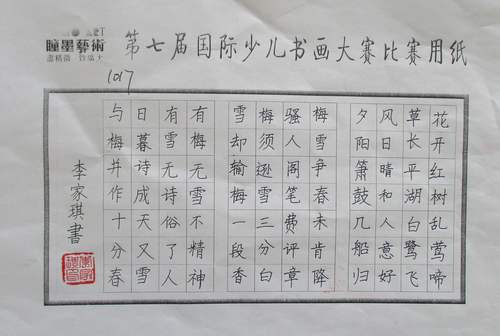 瞳墨藝術
第七届国际少儿书画大赛比赛用纸
1017
花开红树乱莺啼
草长平湖白鹭飞
风日晴和人意好
夕阳箫鼓几船归
梅雪争春未肯降
骚人阁笔费评章
梅须逊雪三分白
雪却输梅一段香
有梅无雪不精神
有雪无诗俗了人
日暮诗成天又雪
与梅并作十分春
李家琪書